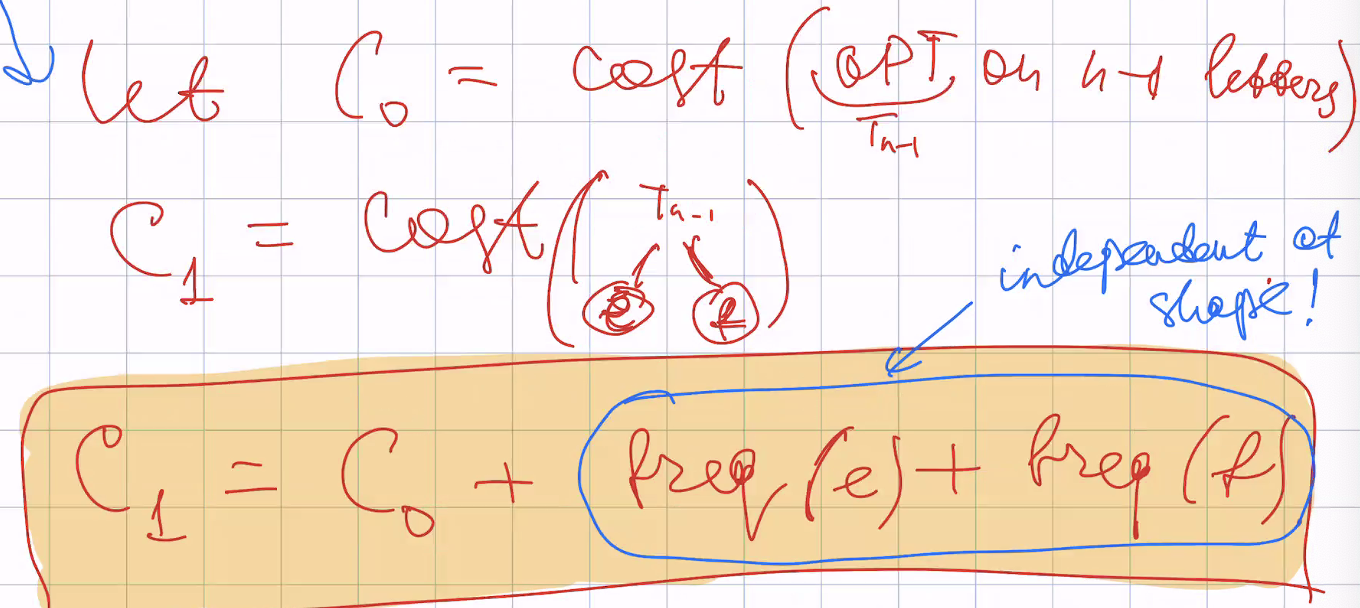 let C₀ = cost (OPT on n-1 letters)
Tₙ₋₁
C₁ = cost ( Tₙ₋₁ )
e f
independent of
shape!
C₁ = C₀ + freq(e) + freq(f)